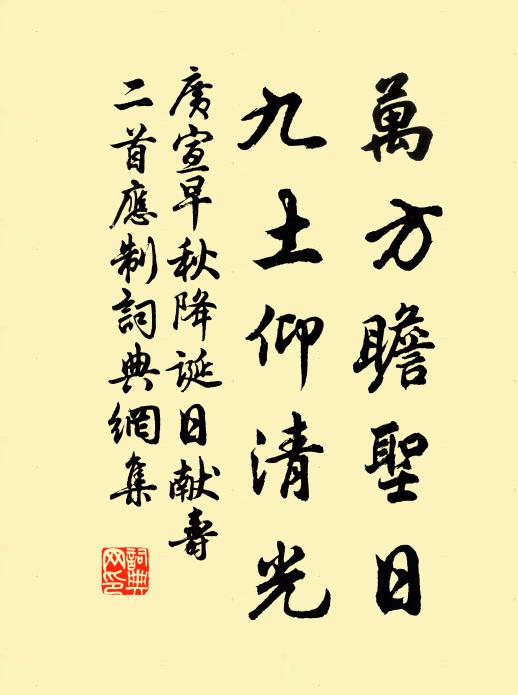 萬方瞻聖日
九土仰清光
廣宣早秋降誕日献壽
二首應制詞典網集
詞典
网印